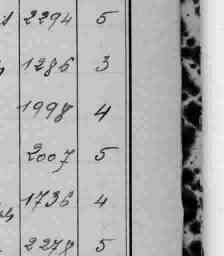 2294 5
1286 3
1998 4
2007 5
1736 4
2278 5